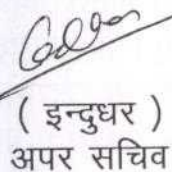 ( इन्दुधर )
अपर सचिव